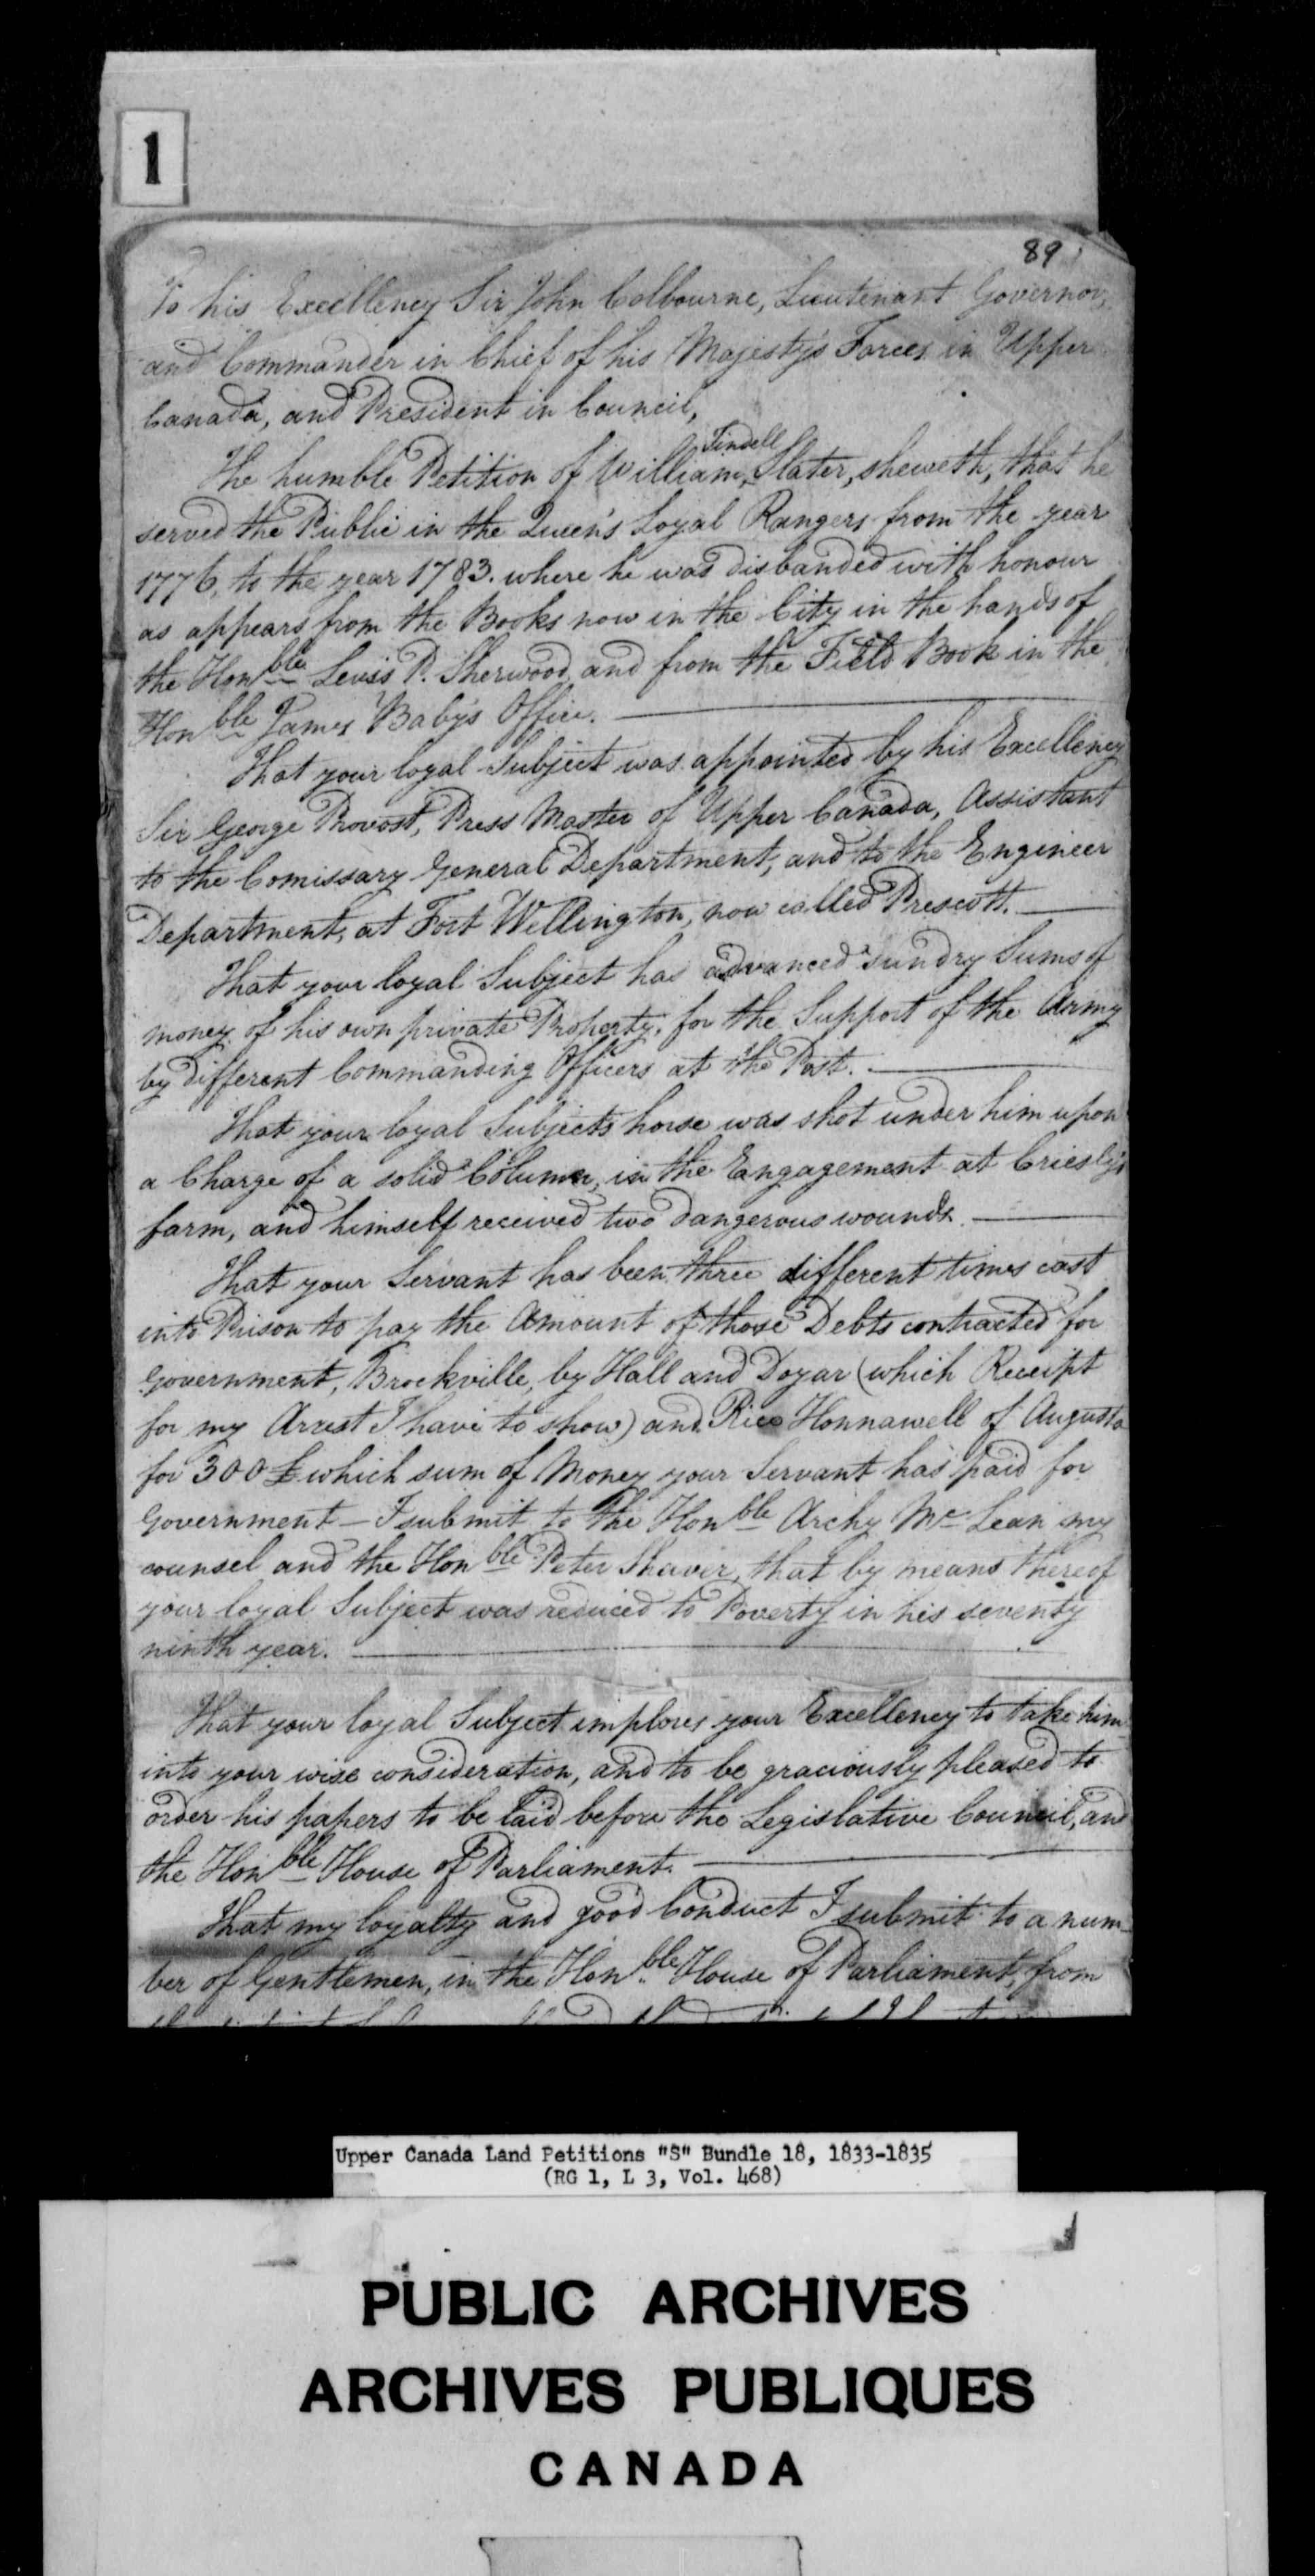 1
89
To his Excellency Sir John Colbourne, Lieutenant Governor,
and Commander in Chief of his Majesty's Forces in Upper
Canada, and President in Council,
Tindell
The humble Petition of William, Slater, sheweth, that he
served the Public in the Queen's Loyal Rangers from the year
1776, to the year 1783. where he was disbanded with honour
as appears from the Books now in the City in the hands of
the Honble Leviss P. Sherwood and from the Field Book in the
Honble James Baby's Office.
That your loyal Subject was appointed by his Excellency
Sir George Provost, Press Master of Upper Canada, Assistant
to the Comissary General Department, and to the Engineer
Department, at Fort Wellington, now called Prescott.
That your loyal Subject has advanced sundry Sums of
money of his own private Property, for the Support of the Army
by different Commanding Officers at the Post.
That your loyal Subjects horse was shot under him upon
a Charge of a solid Column, in the Engagement at Criesly's
farm, and himself received two dangerous wounds.
That your Servant has been three different times cast
into Prison to pay the Amount of those Debts contracted for
Government, Brockville, by Hall and Doyar (which Receipt
for my Arrest I have to show) and Rice Honnawell of Augusta
for 300£ which sum of Money your Servant has paid for
Government - I submit to the Honble Archy Mc Lean my
counsel and the Honble Peter Shaver, that by means thereof
your loyal Subject was reduced to Poverty in his seventy
ninth year.
That your loyal Subject implores your Excellency to take him
into your wise consideration, and to be graciously pleased to
order his papers to be laid before the Legislative Council, and
the Honble House of Parliament.
That my loyalty and good Conduct I submit to a num-
ber of Gentlemen, in the Honble House of Parliament, from
Upper Canada Land Petitions "S" Bundle 18, 1833-1835
(RG 1, L 3, Vol. 468)
PUBLIC ARCHIVES
ARCHIVES PUBLIQUES
CANADA